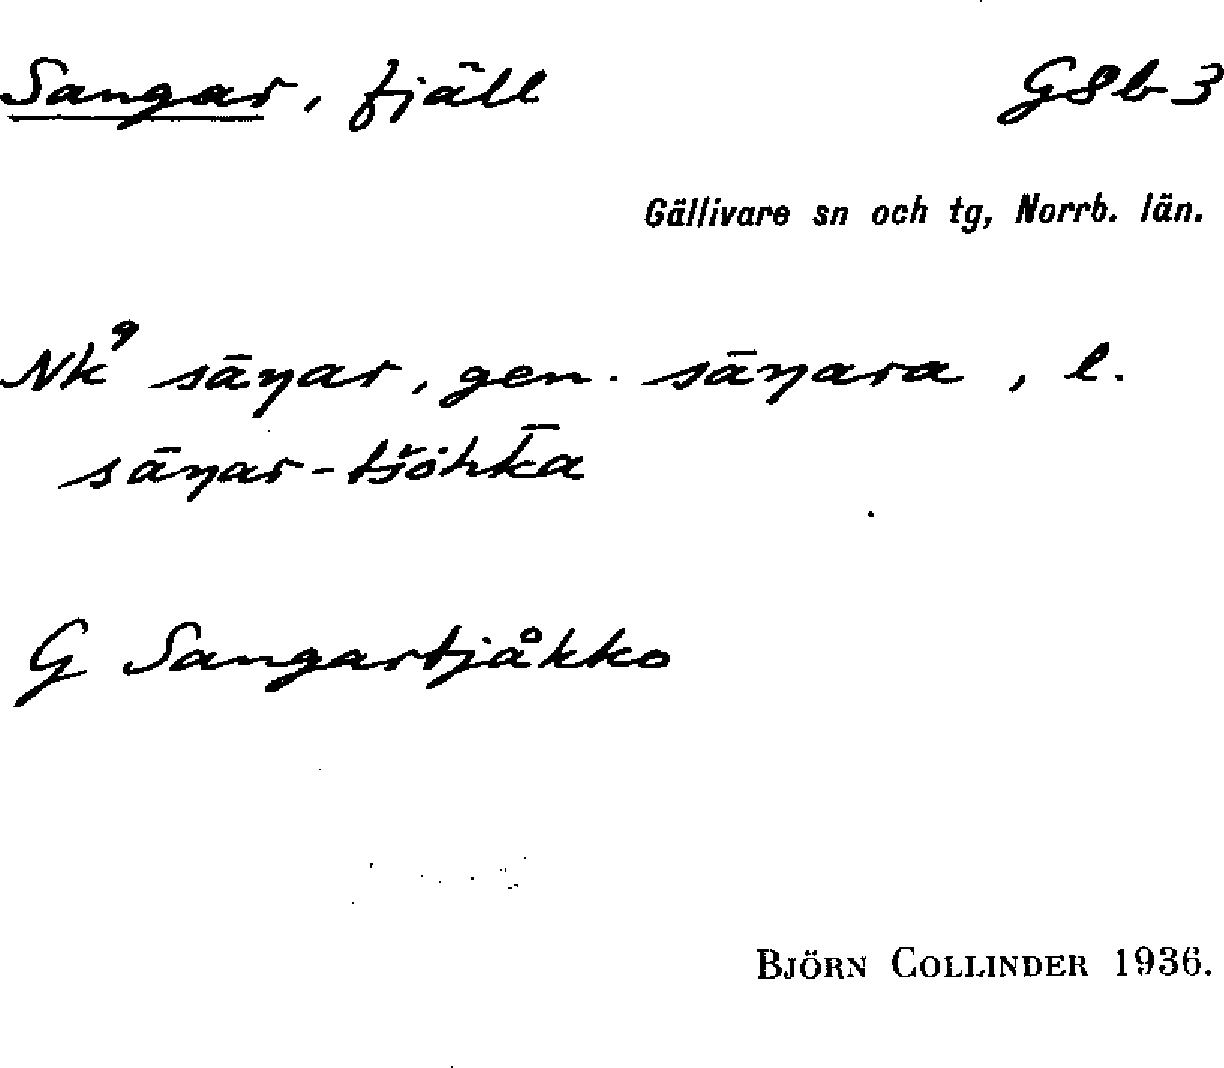 Sangar, fjäll G8b3
Gällivare sn och tg, Norrb. län.
Nk⁹ sāŋar, gen. sāŋara, l.
sāŋar-tšȯhk̄a
G Sangartjåkko
BJÖRN COLLINDER 1936.